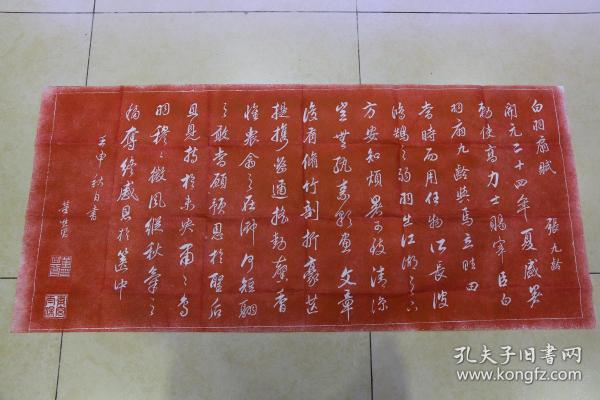 白羽扇賦
張九齡
開元二十四年夏盛暑
勅使高力士賜宰臣白
羽扇九齡與焉立賦曰
當時而用任物所長彼
鴻鵠弱羽出江湖之下
方安知煩暑可致清涼
豈無紈素彩畫文章
復有脩竹剖析豪芒
提攜密邇搖動馨香
惟衆珍之在御何短翮
之敢當顧恩於聖后
且見持於未央
羽穆穆微風縱秋氣之
移奪終感恩於篋中
壬申秋日書
董其昌
孔夫子旧书网
www.kongfz.com